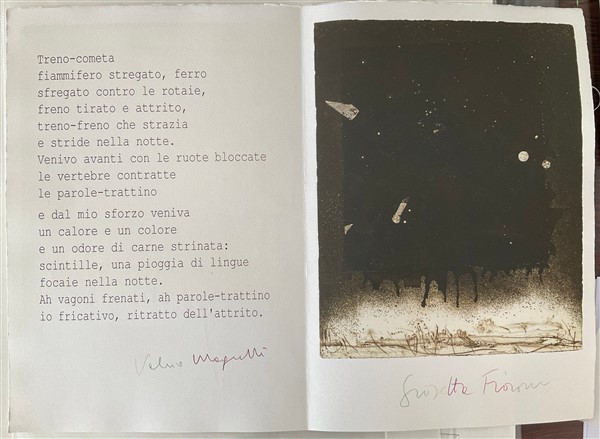 Treno-cometa
fiammifero stregato, ferro
sfregato contro le rotaie,
freno tirato e attrito,
treno-freno che strazia
e stride nella notte.
Venivo avanti con le ruote bloccate
le vertebre contratte
le parole-trattino
e dal mio sforzo veniva
un calore e un colore
e un odore di carne strinata:
scintille, una pioggia di lingue
focaie nella notte.
Ah vagoni frenati, ah parole-trattino
io fricativo, ritratto dell'attrito.
Valerio Magrelli
Giosetta Fioroni